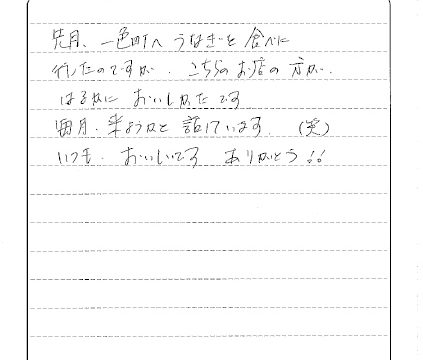 先月、一色町へうなぎを食べに
行ったのですが、こちらのお店の方が、
はるかにおいしかったです
毎月、来ようかと話しています。(笑)
いつも、おいしいです ありがとう!!